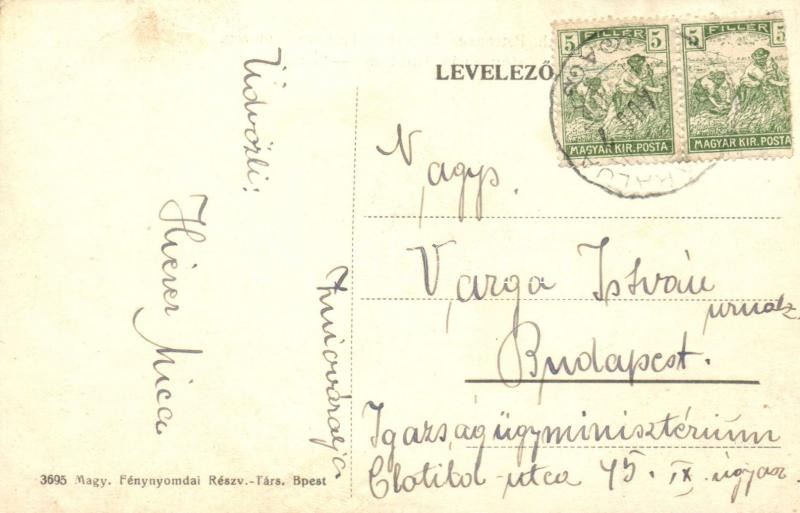 LEVELEZŐ
5 FILLER 5
MAGYAR KIR. POSTA
5 FILLER 5
MAGYAR KIR. POSTA
Üdvözli:
Mica
Nagys.
Varga István
urnak
Budapest.
Igazságügyminisztérium
Clotild-utca 45. IX. ügyosz.
3695 Magy. Fénynyomdai Részv.-Társ. Bpest